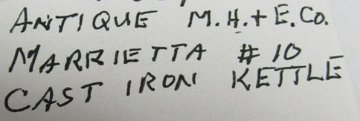 ANTIQUE M.H.+E.CO.
MARRIETTA #10
CAST IRON KETTLE